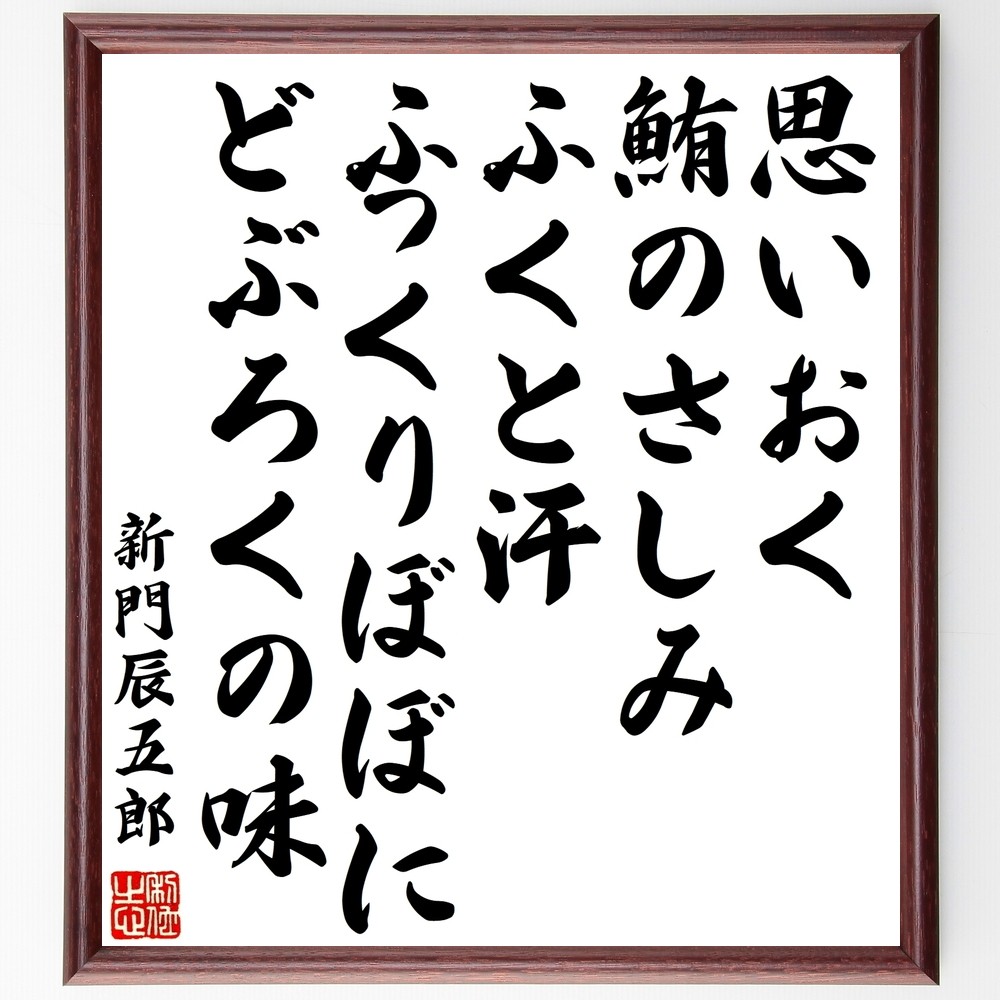 思いおく
鮪のさしみ
ふくと汗
ふっくりぼぼに
どぶろくの味
新門辰五郎